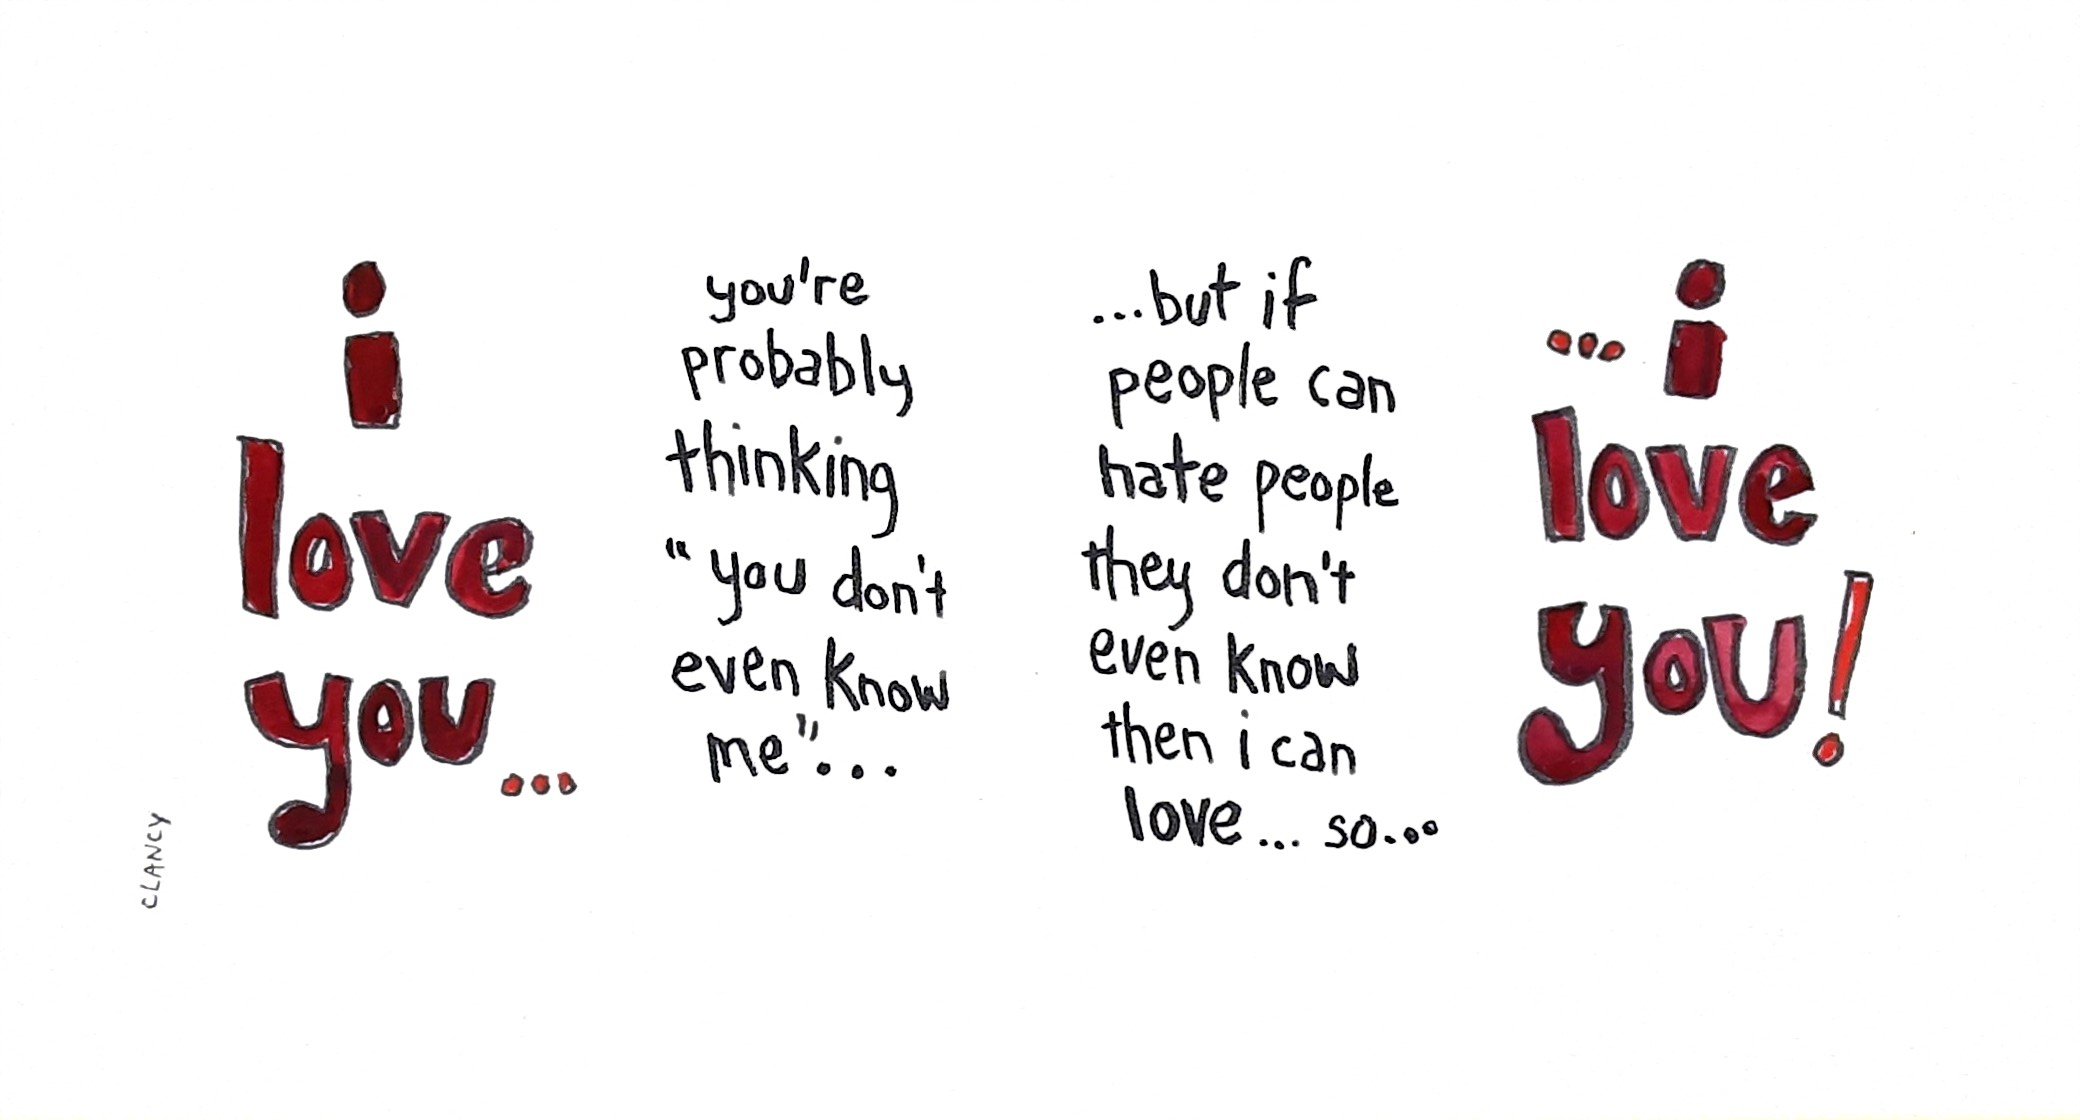 i
love
you...
you're
probably
thinking
"you don't
even know
me"...
...but if
people can
hate people
they don't
even know
then i can
love... so...
...i
love
you!
CLANCY